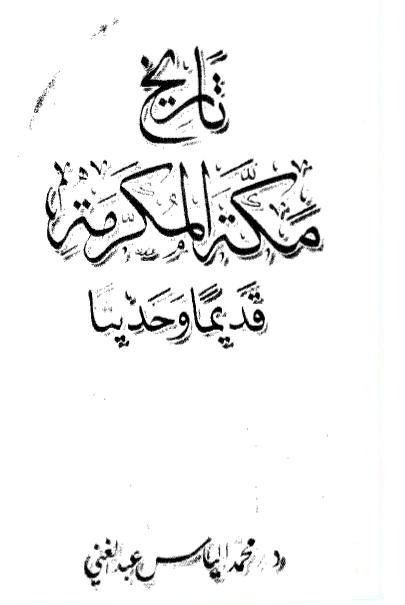 تاريخ
مكَّة المُكرَّمَة
قَديمًا وَحَديثًا
د. محمد إلياس عبد الغني